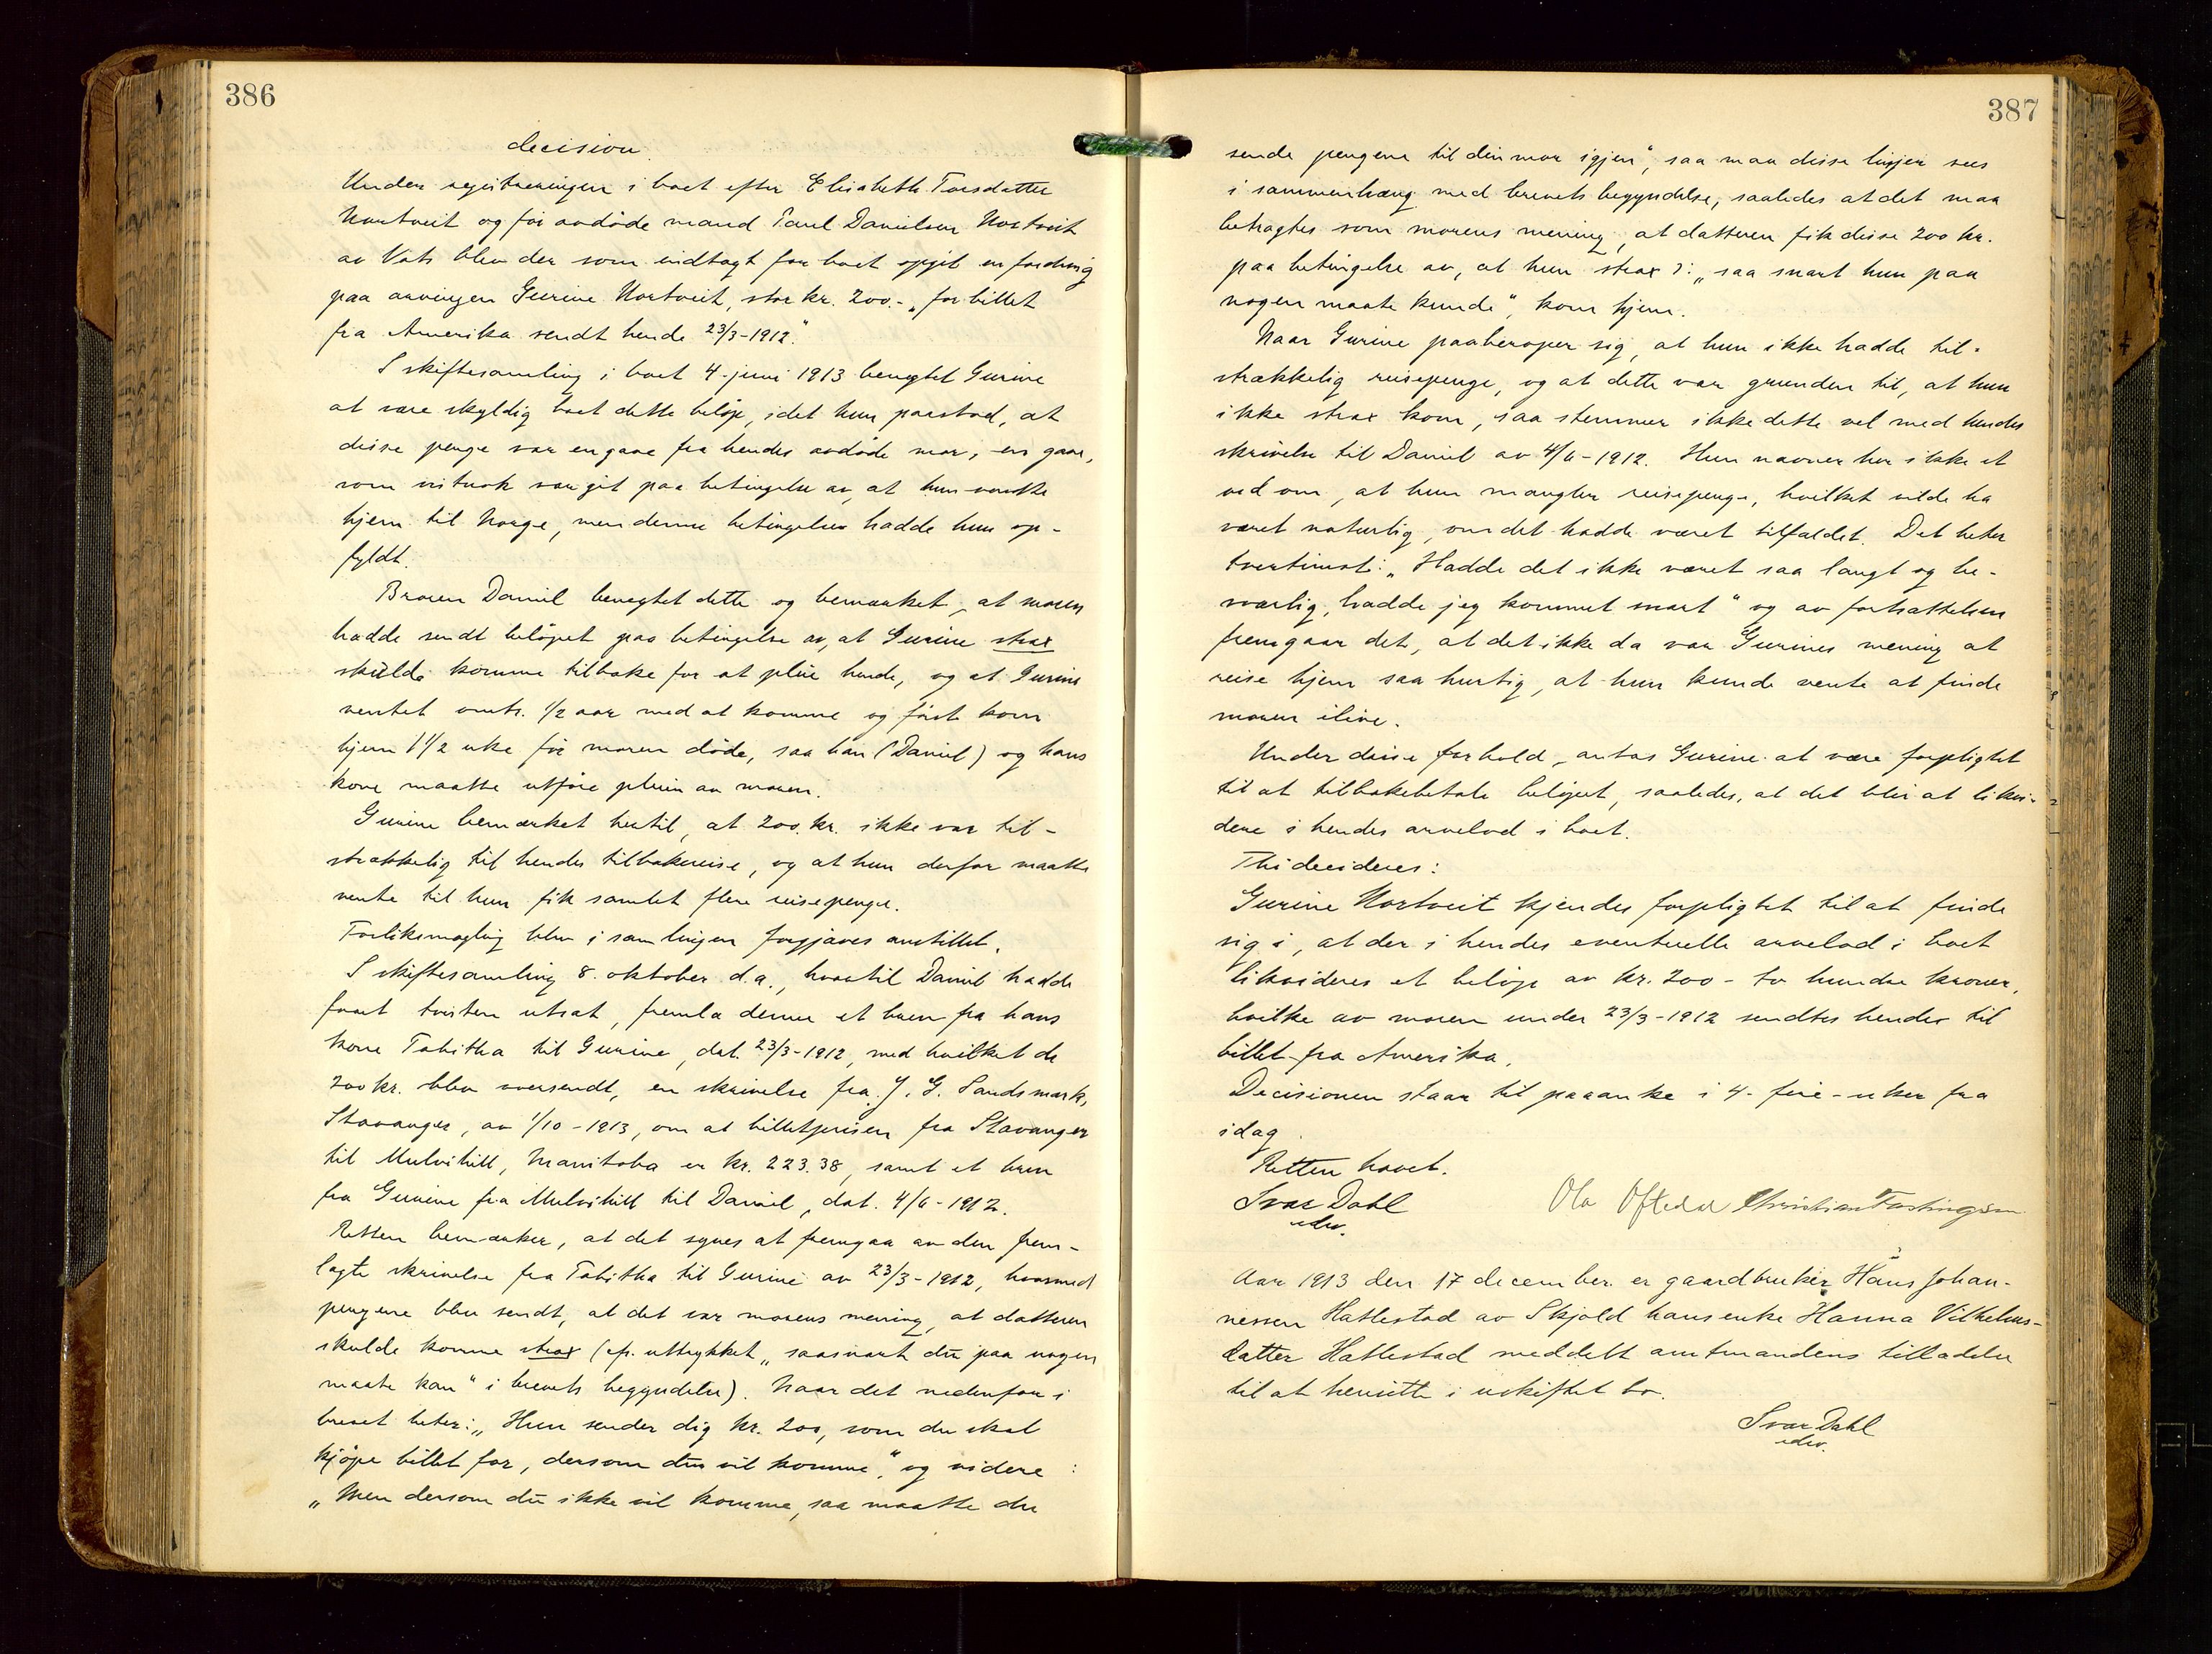 386
decision.
Under registreringen i boet efter Elisabeth Torsdatter
Nortveit og før avdöde mand Paul Danielsen Nortveit
av Vats blev der som indtægt for boet opgit en fordring
paa arvingen Gurine Nortveit, stor kr. 200.- „for billet
fra Amerika sendt hende 23/3-1912."
I skiftesamling i boet 4. juni 1913 benegtet Gurine
at være skyldig boet dette beløp, idet hun paastod, at
disse penge var en gave fra hendes avdöde mor, en gave,
som vistnok var git paa betingelse av, at hun reiste
hjem til Norge, men denne betingelse hadde hun op-
fyldt.
Broren Daniel benegtet dette og bemerket, at moren
hadde sendt beløpet paa betingelse av, at Gurine strax
skulde komme tilbake for at pleie hende, og at Gurine
ventet omtr. 1/2 aar med at komme og først kom
hjem 1 1/2 uke før moren döde, saa han (Daniel) og hans
kone maatte utføre pleien av moren.
Gurine bemærket hertil, at 200 kr. ikke var til-
strækkelig til hendes tilbakereise, og at hun derfor maatte
vente til hun fik samlet flere reisepenge.
Forliksmegling blev i samlingen forgjæves anstillet.
I skiftesamling 8. oktober d.a., hvortil Daniel hadde
faaet tvisten utsat, fremla denne et brev fra hans
kone Tabitha til Gurine, dat. 23/3-1912, med hvilket de
200 kr. blev oversendt, en skrivelse fra J. G. Sandsmark,
Stavanger, av 1/10-1913, om at billetprisen fra Stavanger
til Mulvihill, Manitoba er kr. 223.38, samt et brev
fra Gurine fra Mulvihill til Daniel, dat. 4/6-1912.
Retten bemærker, at det synes at fremgaa av den frem-
lagte skrivelse fra Tabitha til Gurine av 23/3-1912, hvormed
pengene blev sendt, at det var morens mening, at datteren
skulde komme strax (cfr. uttrykket „saasnart du paa nogen
maate kan" i brevets begyndelse). Naar det nedenfor i
brevet heter: „Hun sender dig kr. 200, som du skal
kjøpe billet for, dersom du vil komme", og videre :
„Men dersom du ikke vil komme, saa maatte du
387
sende pengene til din mor igjen", saa maa disse linjer sees
i sammenhæng med brevets begyndelse, saaledes at det maa
betragtes som morens mening, at datteren fik disse 200 kr.
paa betingelse av, at hun strax ɔ: „saa snart hun paa
nogen maate kunde", kom hjem.
Naar Gurine paaberoper sig, at hun ikke hadde til-
strækkelig reisepenge, og at dette var grunden til, at hun
ikke strax kom, saa stemmer ikke dette vel med hendes
skrivelse til Daniel av 4/6-1912. Hun nævner her ikke et
ord om, at hun mangler reisepenge, hvilket vilde ha
været naturlig, om det hadde været tilfældet. Det heter
tvertimot: „Hadde det ikke været saa langt og be-
sværlig, hadde jeg kommet snart" og av fortsættelsen
fremgaar det, at det ikke da var Gurines mening at
reise hjem saa hurtig, at hun kunde vente at finde
moren ilive.
Under disse forhold antas Gurine at være forpligtet
til at tilbakebetale beløpet, saaledes, at det blir at likvi-
dere i hendes arvelod i boet.
Thi decideres:
Gurine Nortveit kjendes forpligtet til at finde
sig i, at der i hendes eventuelle arvelod i boet
likvideres et beløp av kr. 200 - to hundre kroner,
hvilke av moren under 23/3-1912 sendtes hende til
billet fra Amerika.
Decisionen staar til paaanke i 4- fire - uker fra
idag.
Retten hævet.
Ivar Dahl
edsv.
Ola Oftedal Christian Fastingsen
Aar 1913 den 17 december er gaardbruker Hans Johan-
nessen Hatlestad av Skjold hans enke Hanna Vilhelms-
datter Hatlestad meddelt amtmandens tilladelse
til at hensitte i uskiftet bo.
Ivar Dahl
edsv.